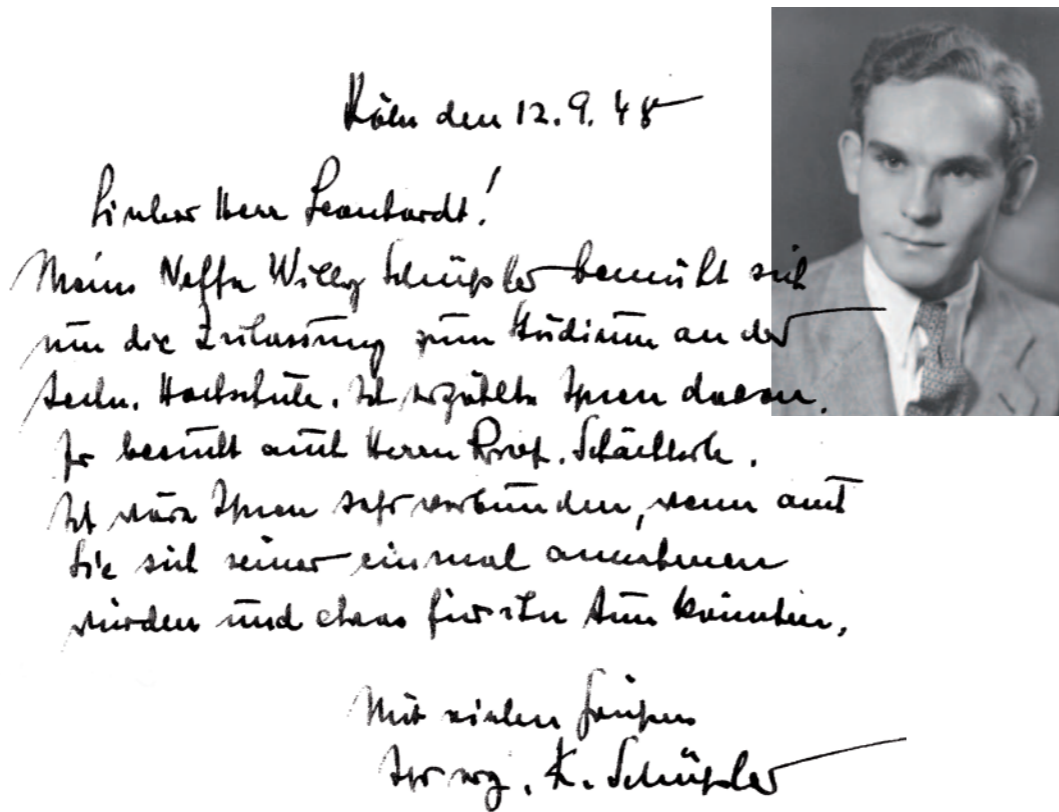 Köln den 12.9.48
Lieber Herr Leonhardt!
Mein Neffe Willy Schüßler bemüht sich
um die Zulassung zum Studium an der
Techn. Hochschule. Ich erzählte Ihnen davon.
Er besucht auch Herrn Prof. Schächterle.
Ich wäre Ihnen sehr verbunden, wenn auch
Sie sich seiner einmal annehmen
würden und etwas für ihn tun könnten.
Mit vielen Grüßen
Ihr erg. K. Schüßler